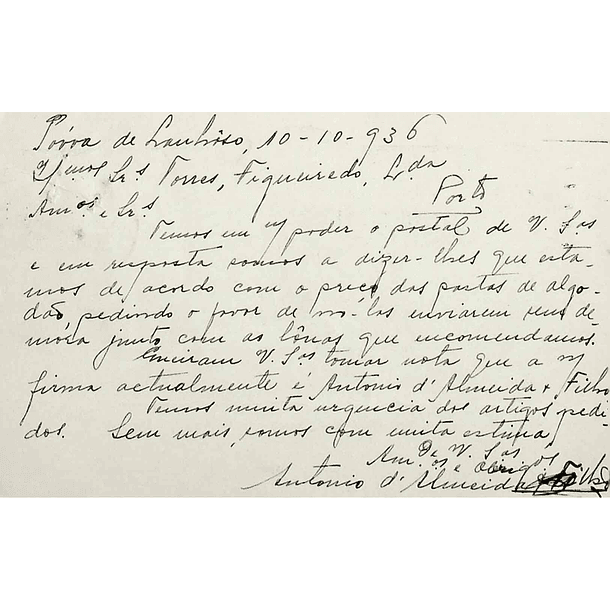 Póvoa de Lanhoso, 10-10-936
Il.mos Srs Torres, Figueiredo, Lda
Porto
Am.os e Srs
Temos em n/ poder o postal de V. Sas
e em resposta somos a dizer-lhes que esta-
mos de acordo com o preço das pastas de algo-
dão, pedindo o favor de no-las enviarem sem de-
mora junto com as lônas que encomendamos.
Queiram V. Sas tomar nota que a n/
firma actualmente é Antonio d'Almeida & Filho
Temos muita urgencia dos artigos pedi-
dos. Sem mais, somos com muita estima
De V. Sas
Am.os e Obrigos
Antonio d'Almeida & Filho